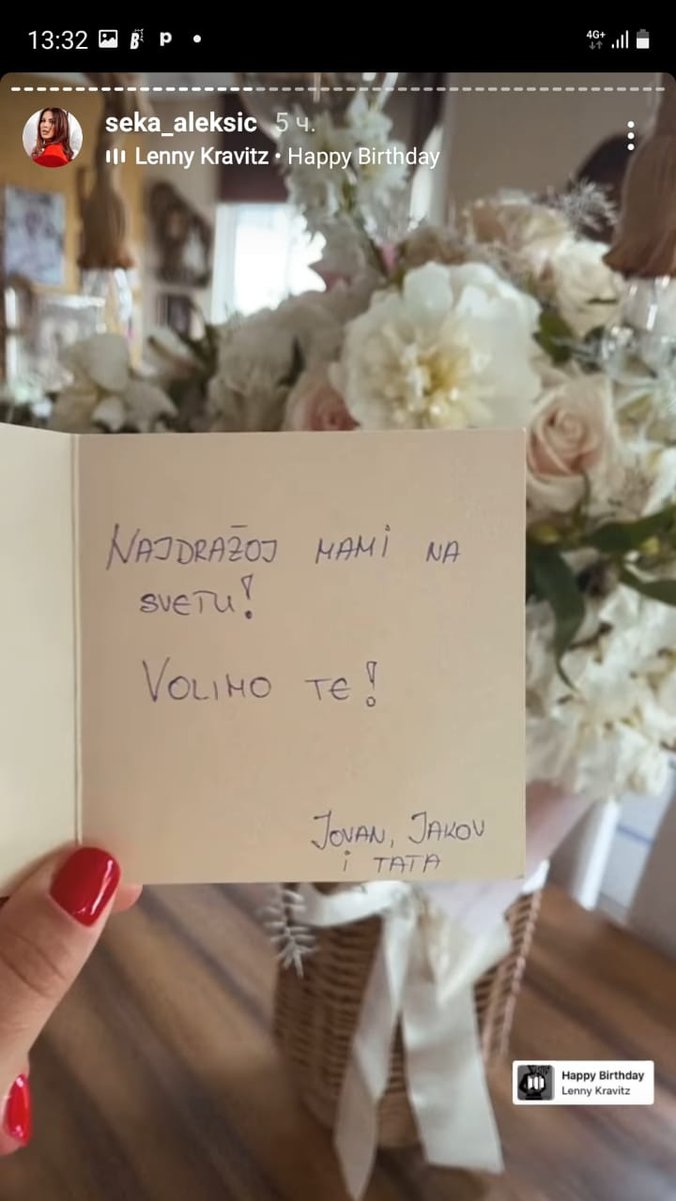 13:32
4G+
seka_aleksic 5 ч.
Lenny Kravitz • Happy Birthday
NAJDRAŽOJ MAMI NA
SVETU!
VOLIMO TE!
JOVAN, JAKOV
i TATA
Happy Birthday
Lenny Kravitz